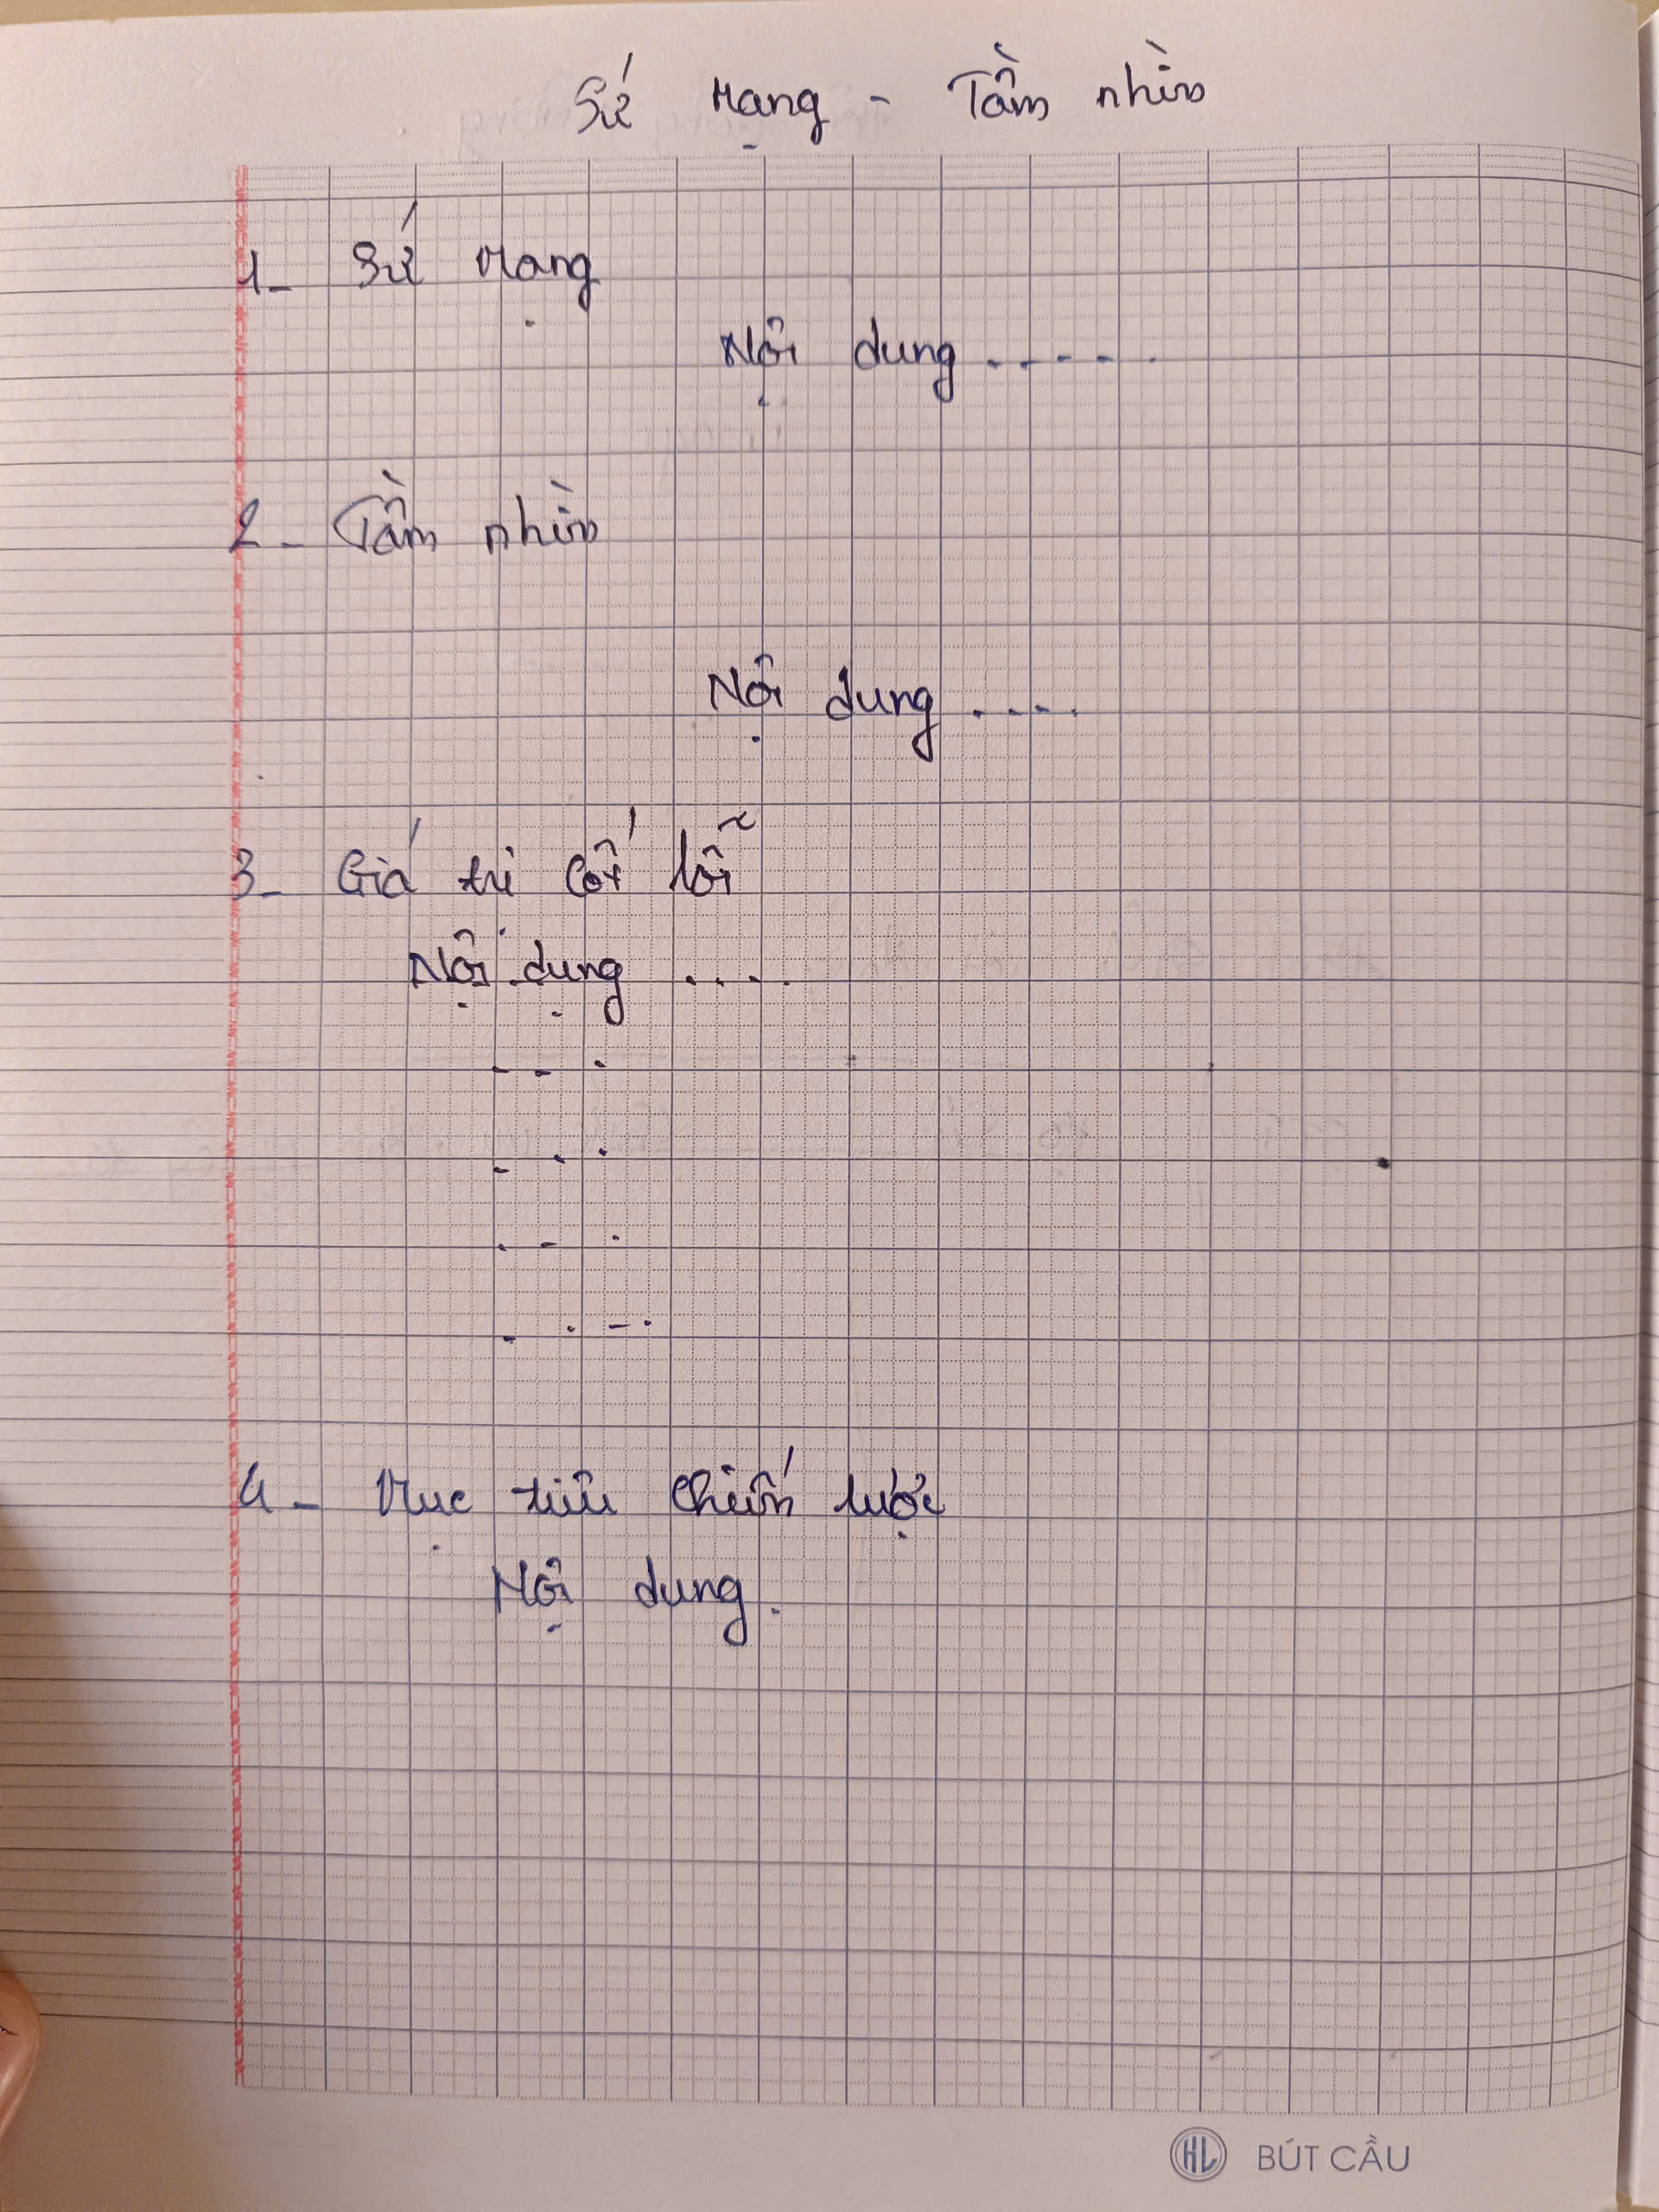 Sứ mạng - Tầm nhìn
1- Sứ mạng
Nội dung . . - - .
2- Tầm nhìn
Nội dung . . . .
3- Giá trị cốt lõi
Nội dung . . . .
- - .
. . .
. - .
. . - .
4- Mục tiêu chiến lược
Nội dung .
HL BÚT CẦU